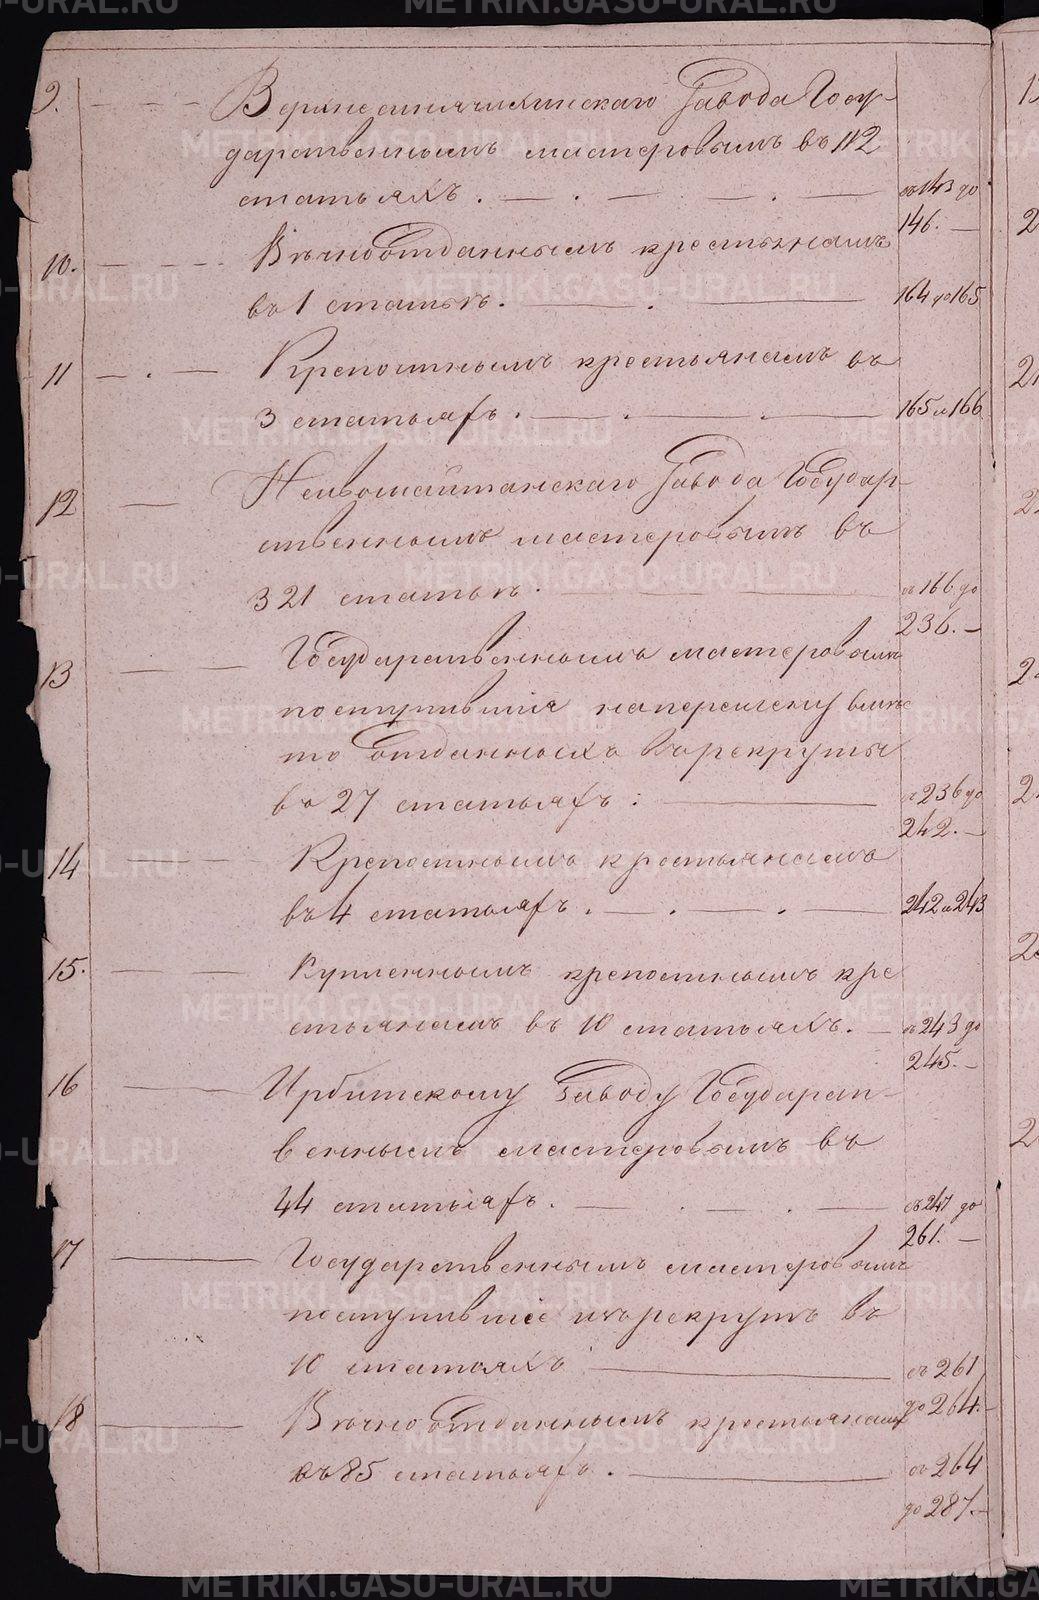 9. Верхнесинячихинскаго Завода Госу-
дарственнымъ мастеровымъ въ 112
статьяхъ. съ 143 до
146.
10. Вѣчноотданнымъ крестьянамъ
въ 1 статьѣ. 164 до 165
11 Крепостнымъ крестьянамъ въ
3 статьяхъ. 165 и 166
12 Нейвошайтанскаго Завода Государ-
ственнымъ мастеровымъ въ
321 статьѣ. съ 166 до
236.
13 Государственнымъ мастеровымъ
поступившія вмѣс
то отданныхъ въ рекруты
въ 27 статьяхъ: съ 236 до
242.
14 Крепостнымъ крестьянамъ
въ 4 статьяхъ. 242 и 243
15. Купленнымъ крепостнымъ кре
стьянамъ въ 10 статьяхъ. съ 243 до
245.
16 Ирбитскому Заводу Государст-
веннымъ мастеровымъ въ
44 статьяхъ. съ 247 до
261.
17 Государственнымъ мастеровымъ
поступившіе изъ рекрутъ въ
10 статьяхъ съ 261
до 264.
18 Вѣчно отданнымъ крестьянамъ
въ 85 статьяхъ. съ 264
до 287.
METRIKI.GASO-URAL.RU